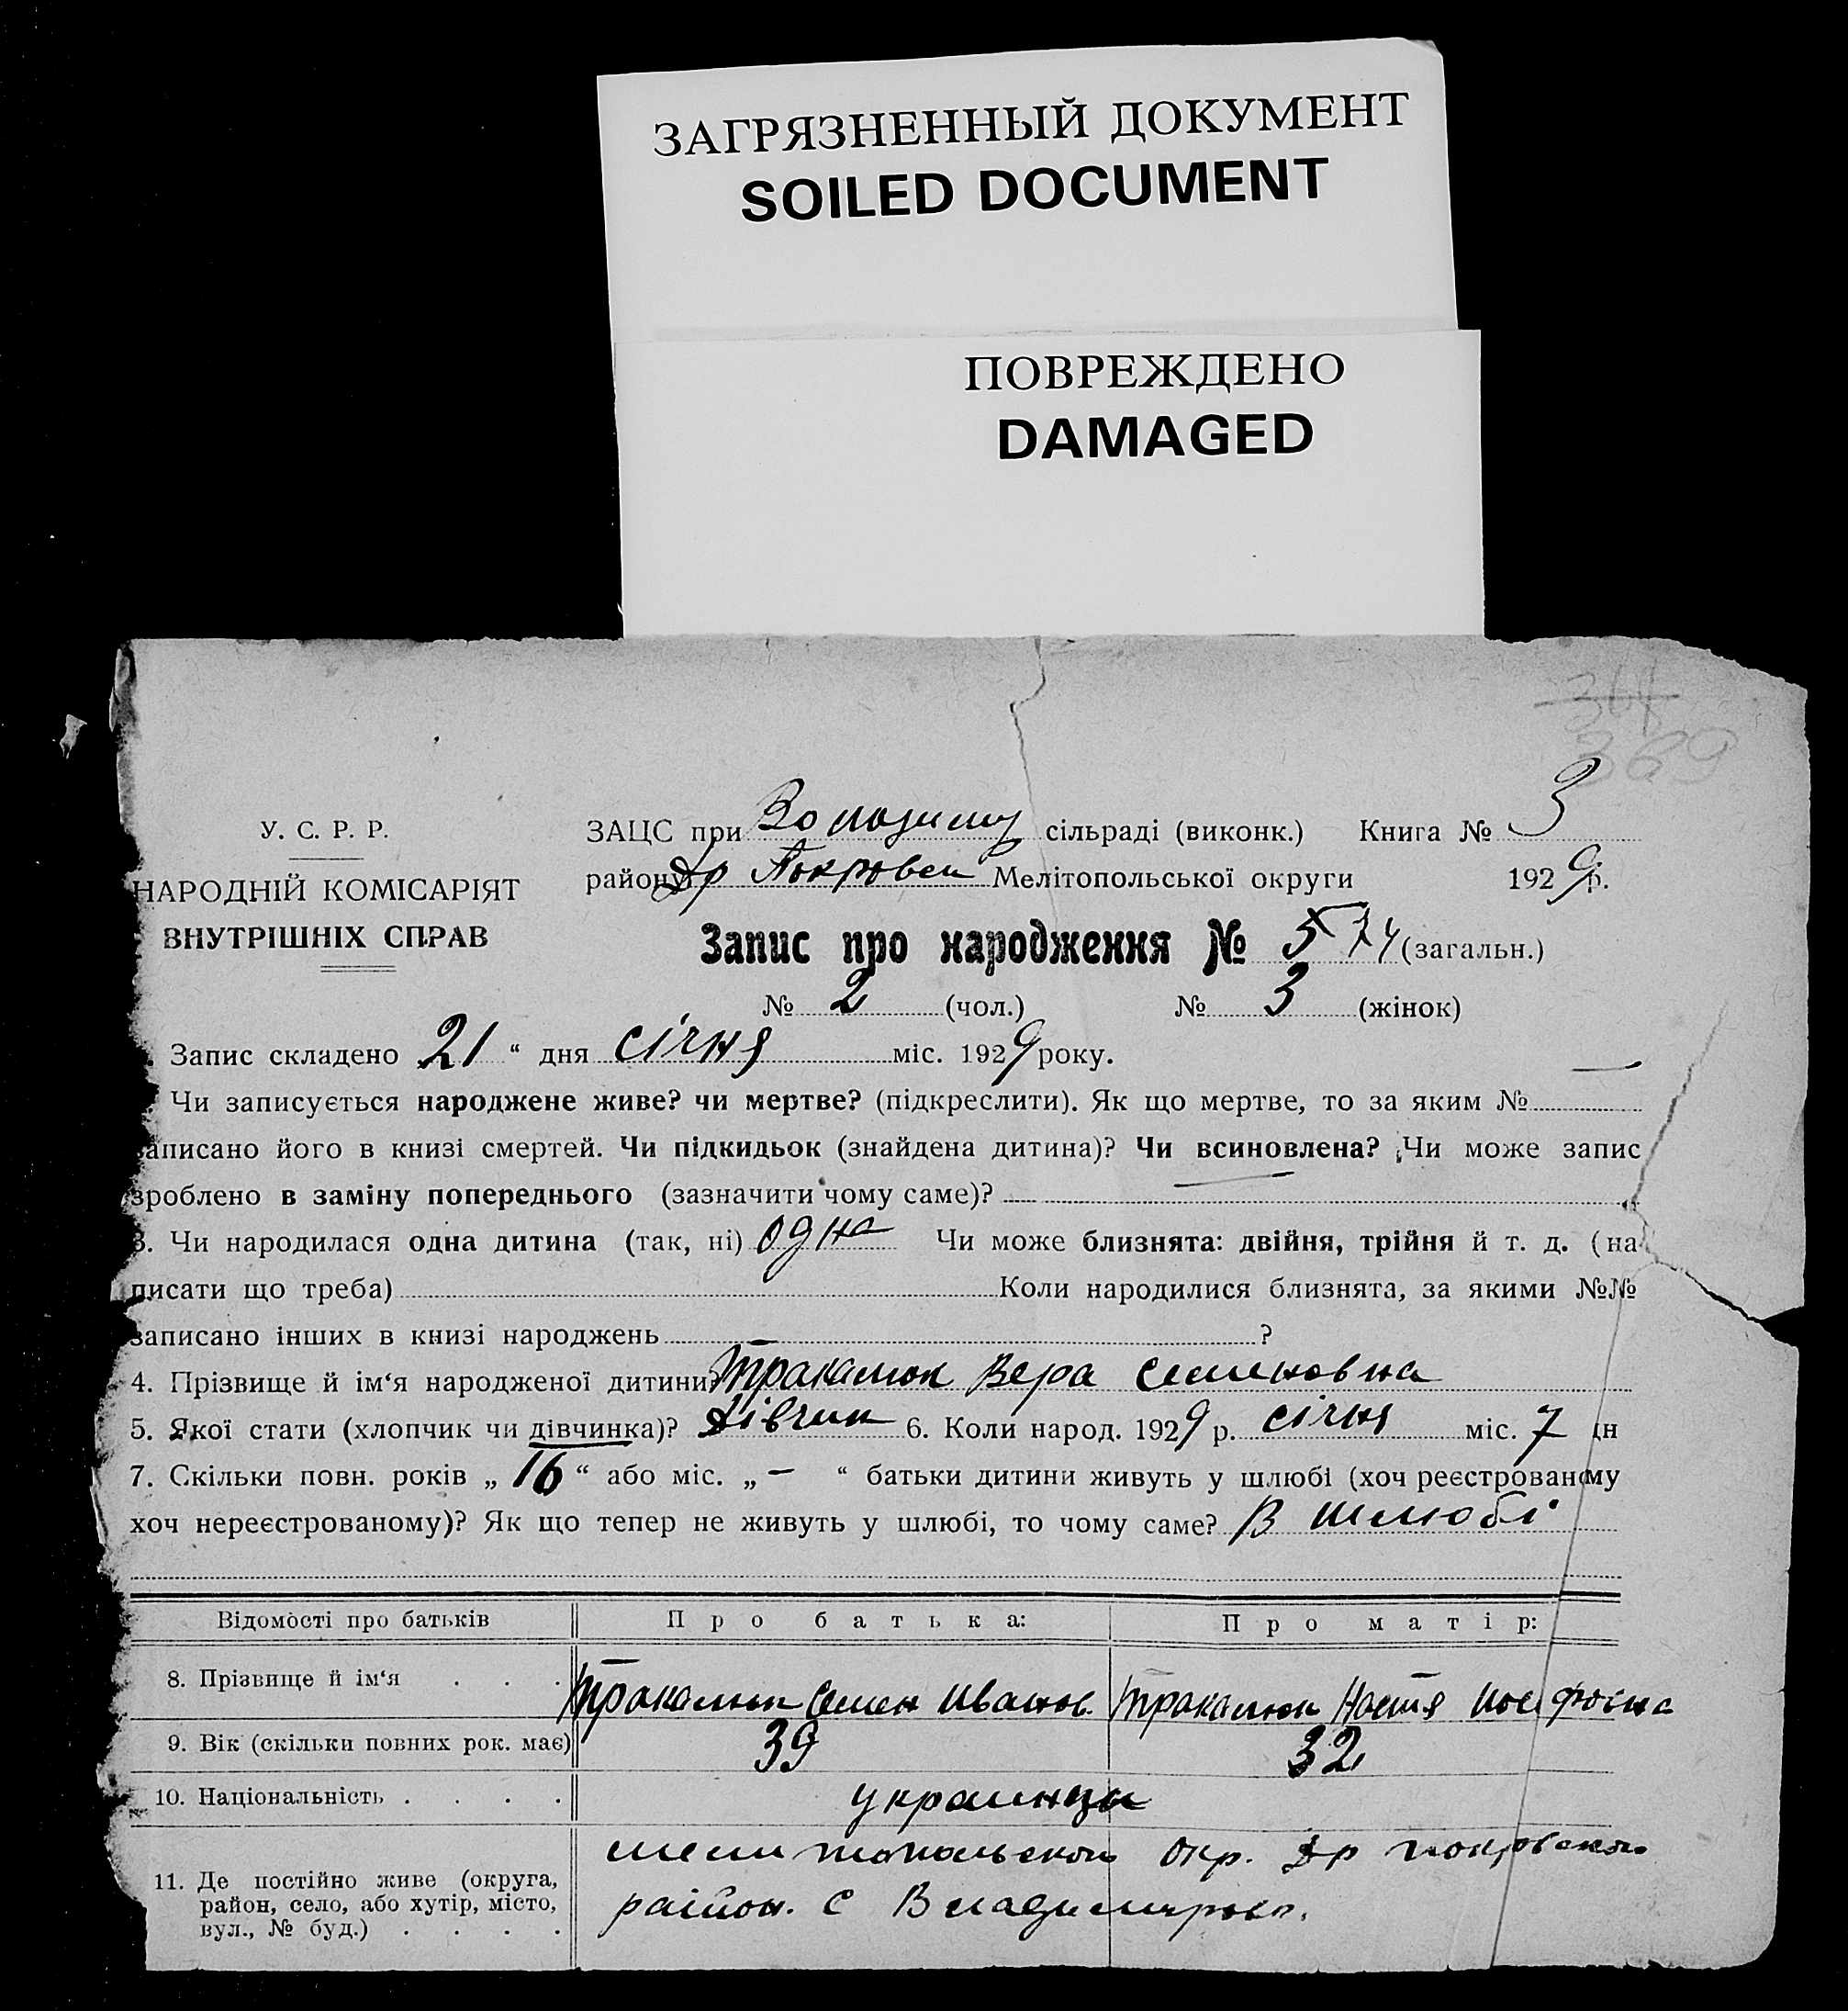 ЗАГРЯЗНЕННЫЙ ДОКУМЕНТ
SOILED DOCUMENT
ПОВРЕЖДЕНО
DAMAGED
368
369
У. С. Р. Р.
НАРОДНІЙ КОМІСАРІЯТ
ВНУТРІШНІХ СПРАВ
ЗАЦС при Володими сільраді (виконк.) Книга № 3
району Др Покровск Мелітопольської округи 1929 р.
Запис про народження № 5 (загальн.)
№ 2 (чол.) № 3 (жінок)
Запис складено 21 “ дня січня міс. 1929 року.
Чи записується народжене живе? чи мертве? (підкреслити). Як що мертве, то за яким № —
записано його в книзі смертей. Чи підкидьок (знайдена дитина)? Чи всиновлена? Чи може запис
зроблено в заміну попереднього (зазначити чому саме)?
3. Чи народилася одна дитина (так, ні) одна Чи може близнята: двійня, трійня й т. д. (на
писати що треба) Коли народилися близнята, за якими №№
записано інших в книзі народжень ?
4. Прізвище й ім‘я народженої дитини? Тракалюк Вера Семеновна
5. Якої стати (хлопчик чи дівчинка)? Дівчин 6. Коли народ. 1929 р. січня міс. 7 дн
7. Скільки повн. років „ 16 “ або міс. „ — “ батьки дитини живуть у шлюбі (хоч реєстрованому
хоч нереєстрованому)? Як що тепер не живуть у шлюбі, то чому саме? В шлюбі
Відомості про батьків Про батька: Про матір:
8. Прізвище й ім‘я . . . Тракалюк Семен Иванов. Тракалюк Настя
9. Вік (скільки повних рок. має) 39 32
10. Національність . . . . украинцы
11. Де постійно живе (округа,
район, село, або хутір, місто,
вул., № буд.) . . . .
мелитопольской Окр. Др покровского
район. С Владимировк.